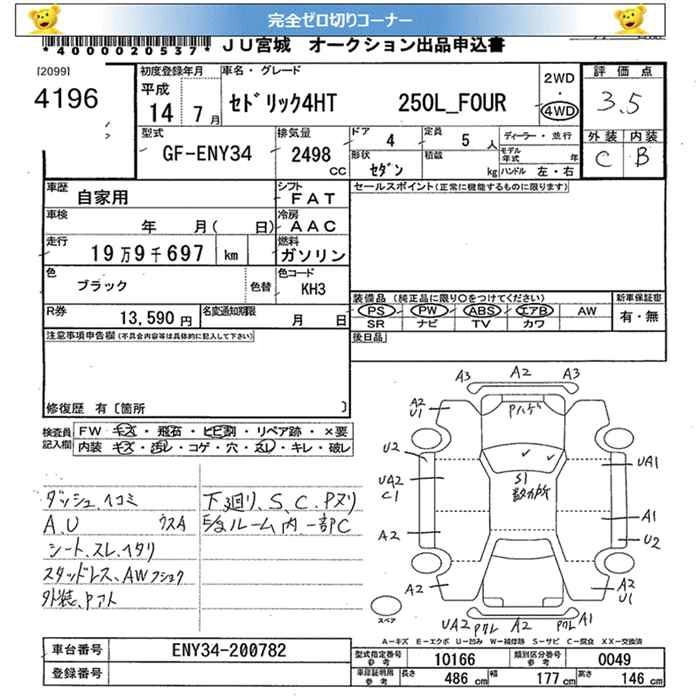 完全ゼロ切りコーナー
*40000020537* JU宮城 オークション出品申込書
[2099]
4196
初度登録年月 平成 14年 7月
車名・グレード セドリック4HT 250L_FOUR
2WD・4WD
評価点 3.5
外装 C 内装 B
型式 GF-ENY34
排気量 2498 CC
ドア 4 定員 5人
形状 セダン 積載 kg
ディーラー・並行
モデル年式 年
ハンドル 左・右
車歴 自家用
シフト FAT
セールスポイント(正常に機能するものに限ります)
車検 年 月( 日)
冷房 AAC
走行 19万9千697 km
燃料 ガソリン
色 ブラック 色替
色コード KH3
R券 13,590円 名変通知期限 月 日
装備品 (純正品に限り○をつけてください)
PS PW ABS エアB AW
SR ナビ TV カワ
新車保証書 有・無
注意事項申告欄(不具合内容等は具体的に記入して下さい)
後日品
修復歴 有〔箇所 〕
検査員記入欄
FW キズ・飛石・ヒビ割・リペア跡・×要
内装 キズ・汚レ・コゲ・穴・スレ・キレ・破レ
ダッシュ、ヘコミ
A.U ウスA
シート、スレ、ヘタリ
スタッドレス、AWフショク
外装、Pアト
下廻り、S、C、Pヌリ
E/gルーム内、一部C
A3 A2 A3
Pハゲ
A2 U1
U2
UA2 C1
A2
A2
S1
UA1
A1
U2
A2 U1
UA2 Pワレ A2 Pワレ A1
スペア
A-キズ E-エクボ U-凹み W-補修跡 S-サビ C-腐食 XX-交換済
車台番号 ENY34-200782
登録番号
型式指定番号 参考 10166
類別区分番号 参考 0049
車庫証明用 参考 長さ 486 cm 幅 177 cm 高さ 146 cm